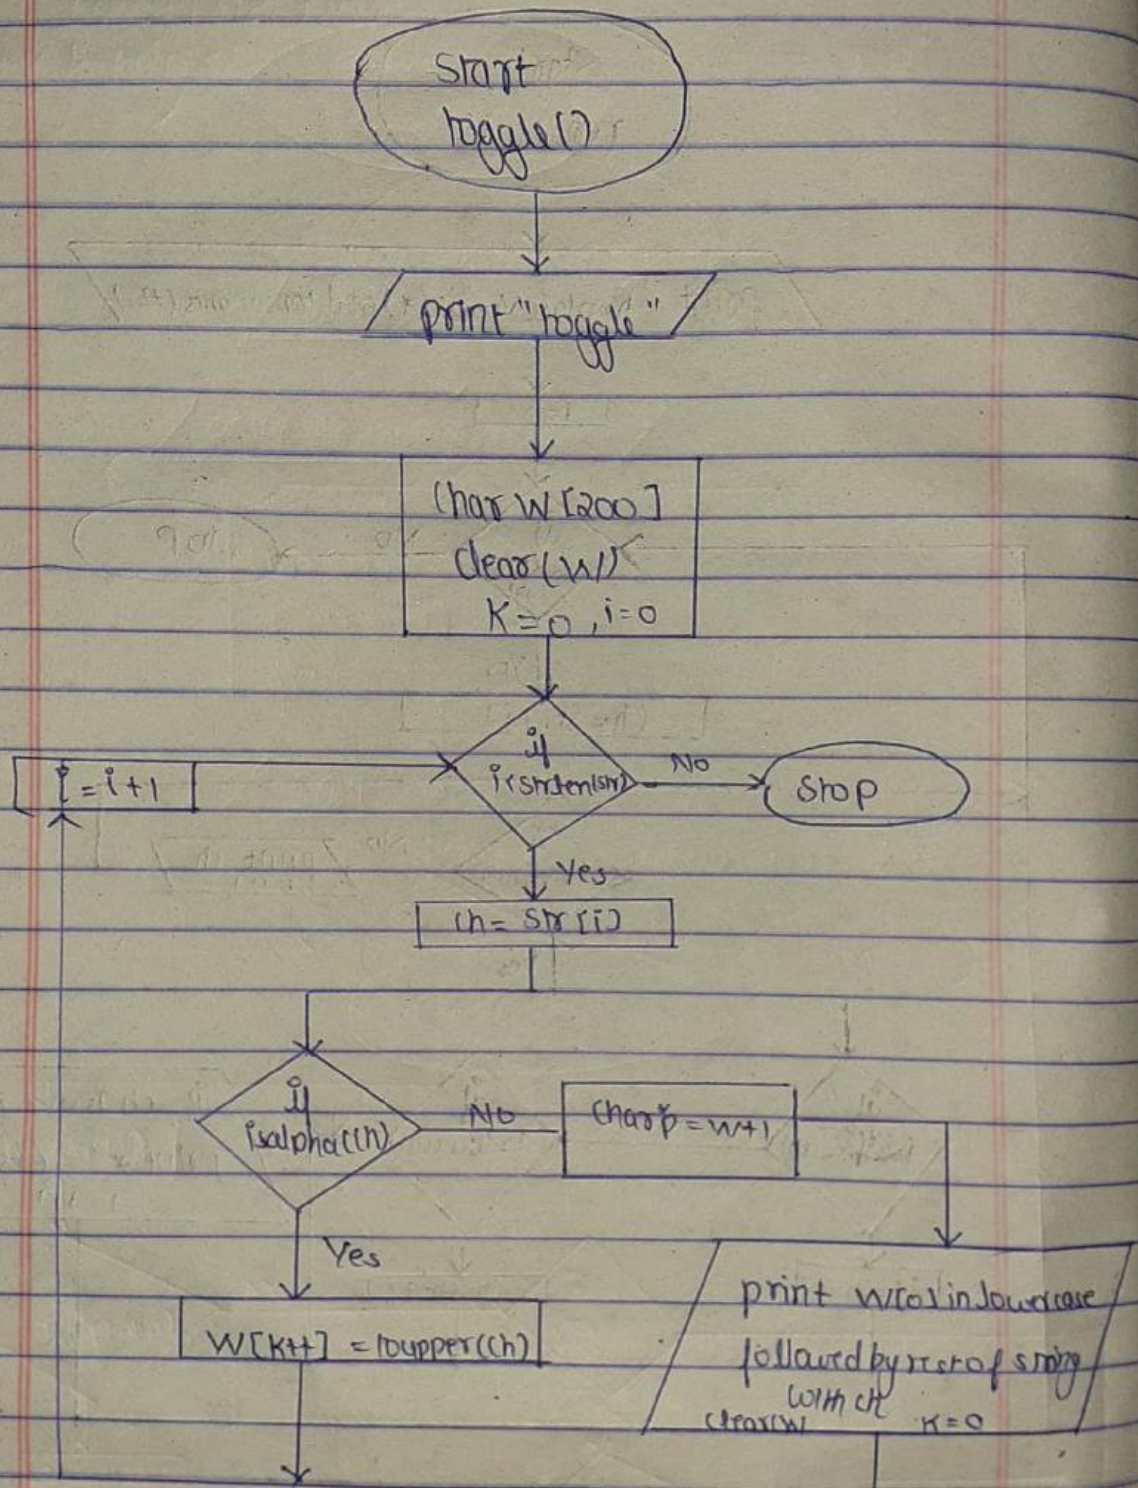 Start
toggle()
print "toggle"
Char W [200]
clear(W)
K=0, i=0
if
i<strlen(str)
No
Stop
i=i+1
Yes
ch= str [i]
if
isalpha(ch)
No
Char*p = w+1
Yes
W[K++] = toupper(ch)
print w[0] in lowercase
followed by rest of string
with ch
clear(W K=0